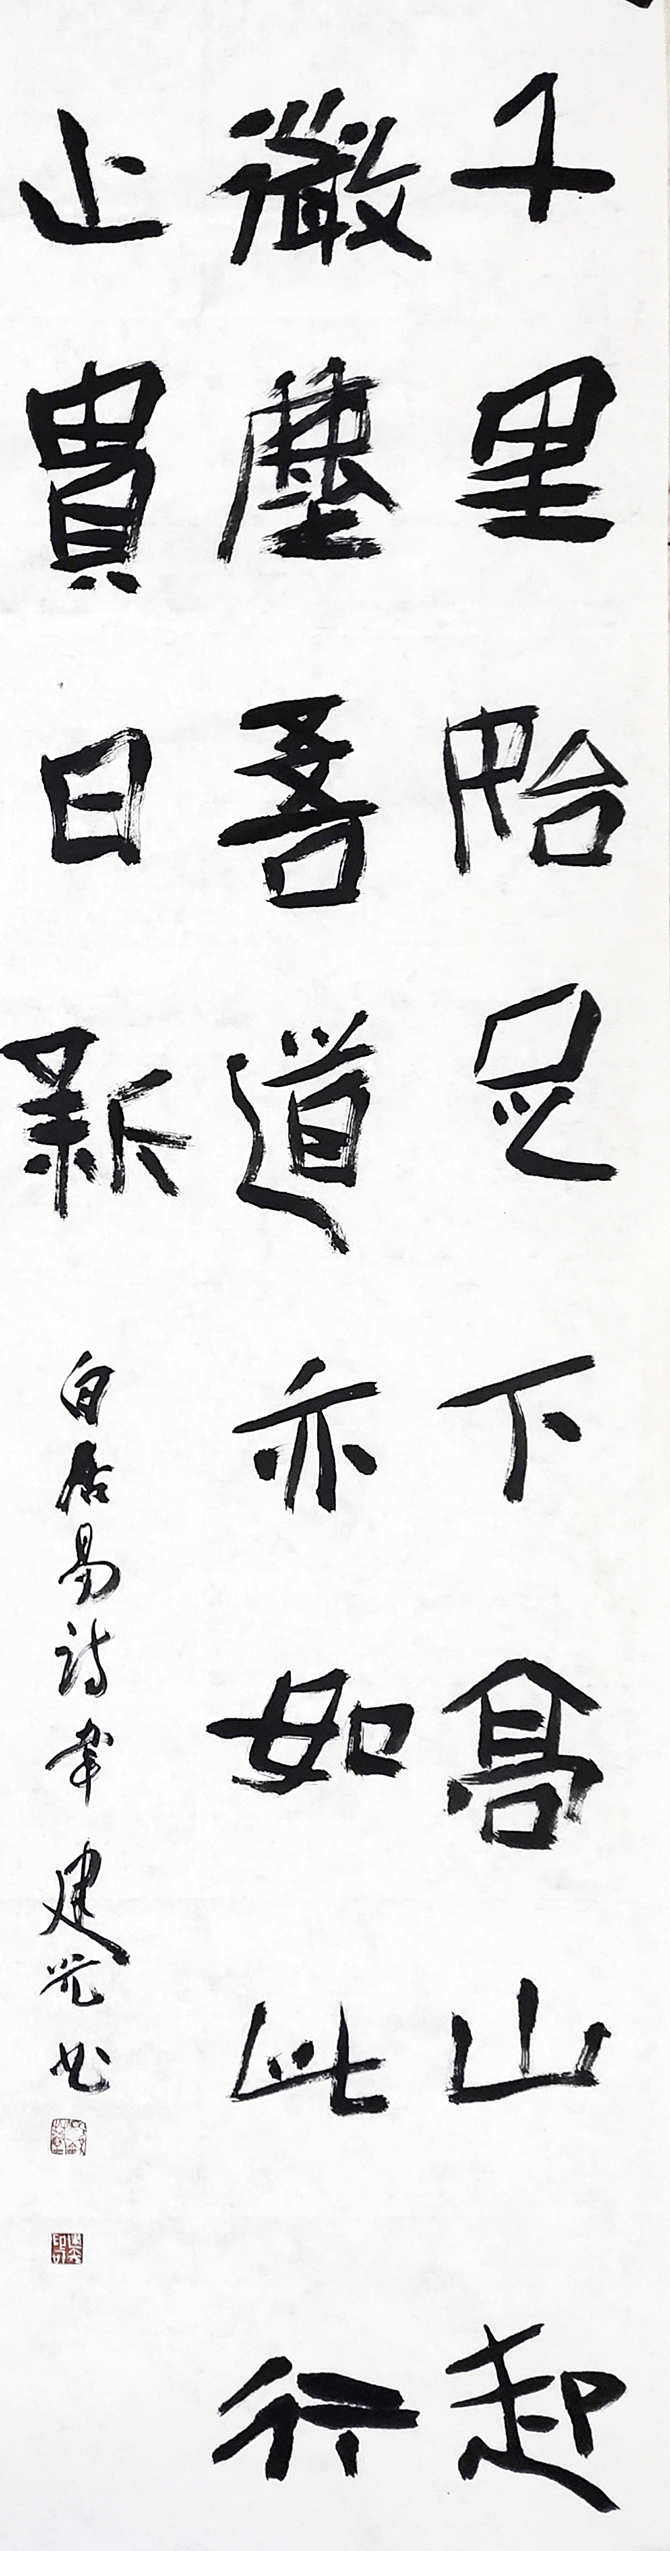 千里始足下高山起
微塵吾道亦如此行
止貴日新
白居易詩韋建光书